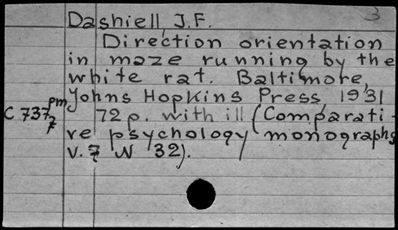 3
Dashiell, J.F.
Direction orientation
in maze running by the
white rat. Baltimore,
Johns Hopkins Press, 1931
C 737pm 72 p. with ill (Comparati-
7
ve psychology monographs
v. 7 N 32).